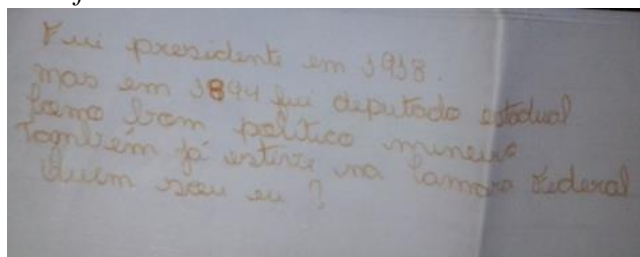 Fui presidente em 1918.
mas em 1894 fui deputado estadual
como bom político mineiro
Também já estive na Camara Federal
Quem sou eu ?